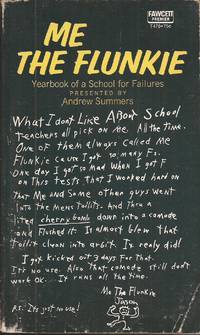 FAWCETT
PREMIER
T475 • 75c
ME
THE FLUNKIE
Yearbook of a School for Failures
PRESENTED BY
Andrew Summers
What I dont Like About School
Teachers all pick on me. All the Time.
One of them always called Me
Flunkie cause I got so many F's
One day I got so mad when I got F
on this tests that I worked hard on
That Me and Some other guys went
Into the Mens toilit. And thru a
lited cherry bomb down into a comode
and Flushed it. It almost blew that
toilit clean into orbit. It realy did!
I got kicked out 3 days For that.
It's no use. Also that comode still dont
work OK. It runs all the time.
Me The Flunkie
Jason
P.S. It's just no use!